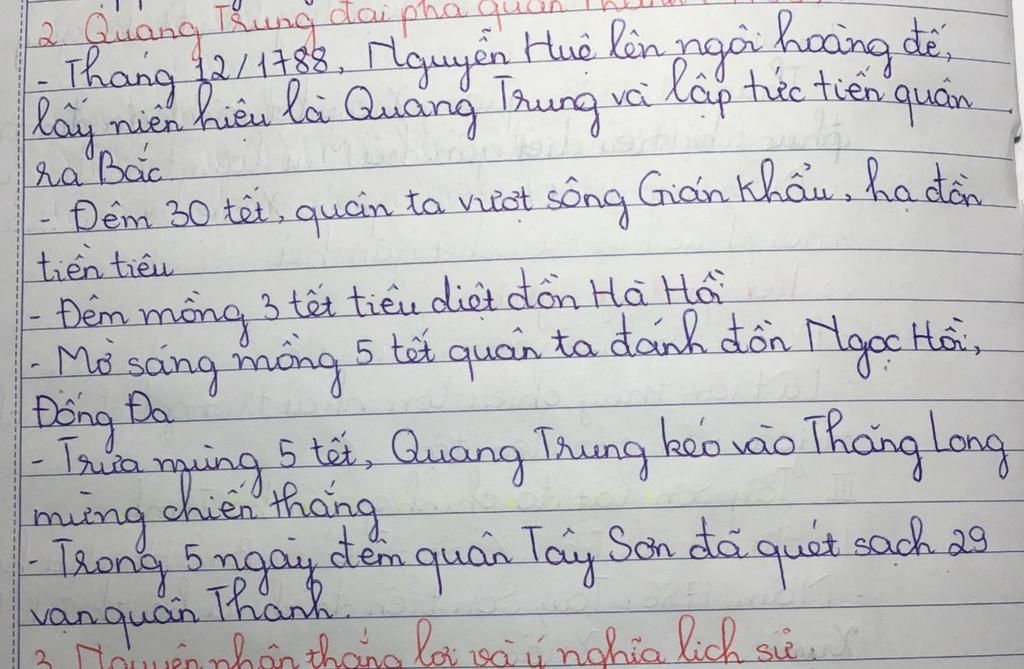 2. Quang Trung đại phá quân Thanh
- Tháng 12/1788, Nguyễn Huệ lên ngôi hoàng đế,
lấy niên hiệu là Quang Trung và lập tức tiến quân
ra Bắc
- Đêm 30 tết, quân ta vượt sông Gián Khẩu, hạ đồn
tiền tiêu
- Đêm mồng 3 tết tiêu diệt đồn Hà Hồi
- Mờ sáng mồng 5 tết quân ta đánh đồn Ngọc Hồi,
Đống Đa
- Trưa mùng 5 tết, Quang Trung kéo vào Thăng Long
mừng chiến thắng
- Trong 5 ngày đêm quân Tây Sơn đã quét sạch 29
vạn quân Thanh.
3. Nguyên nhân thắng lợi và ý nghĩa lịch sử.